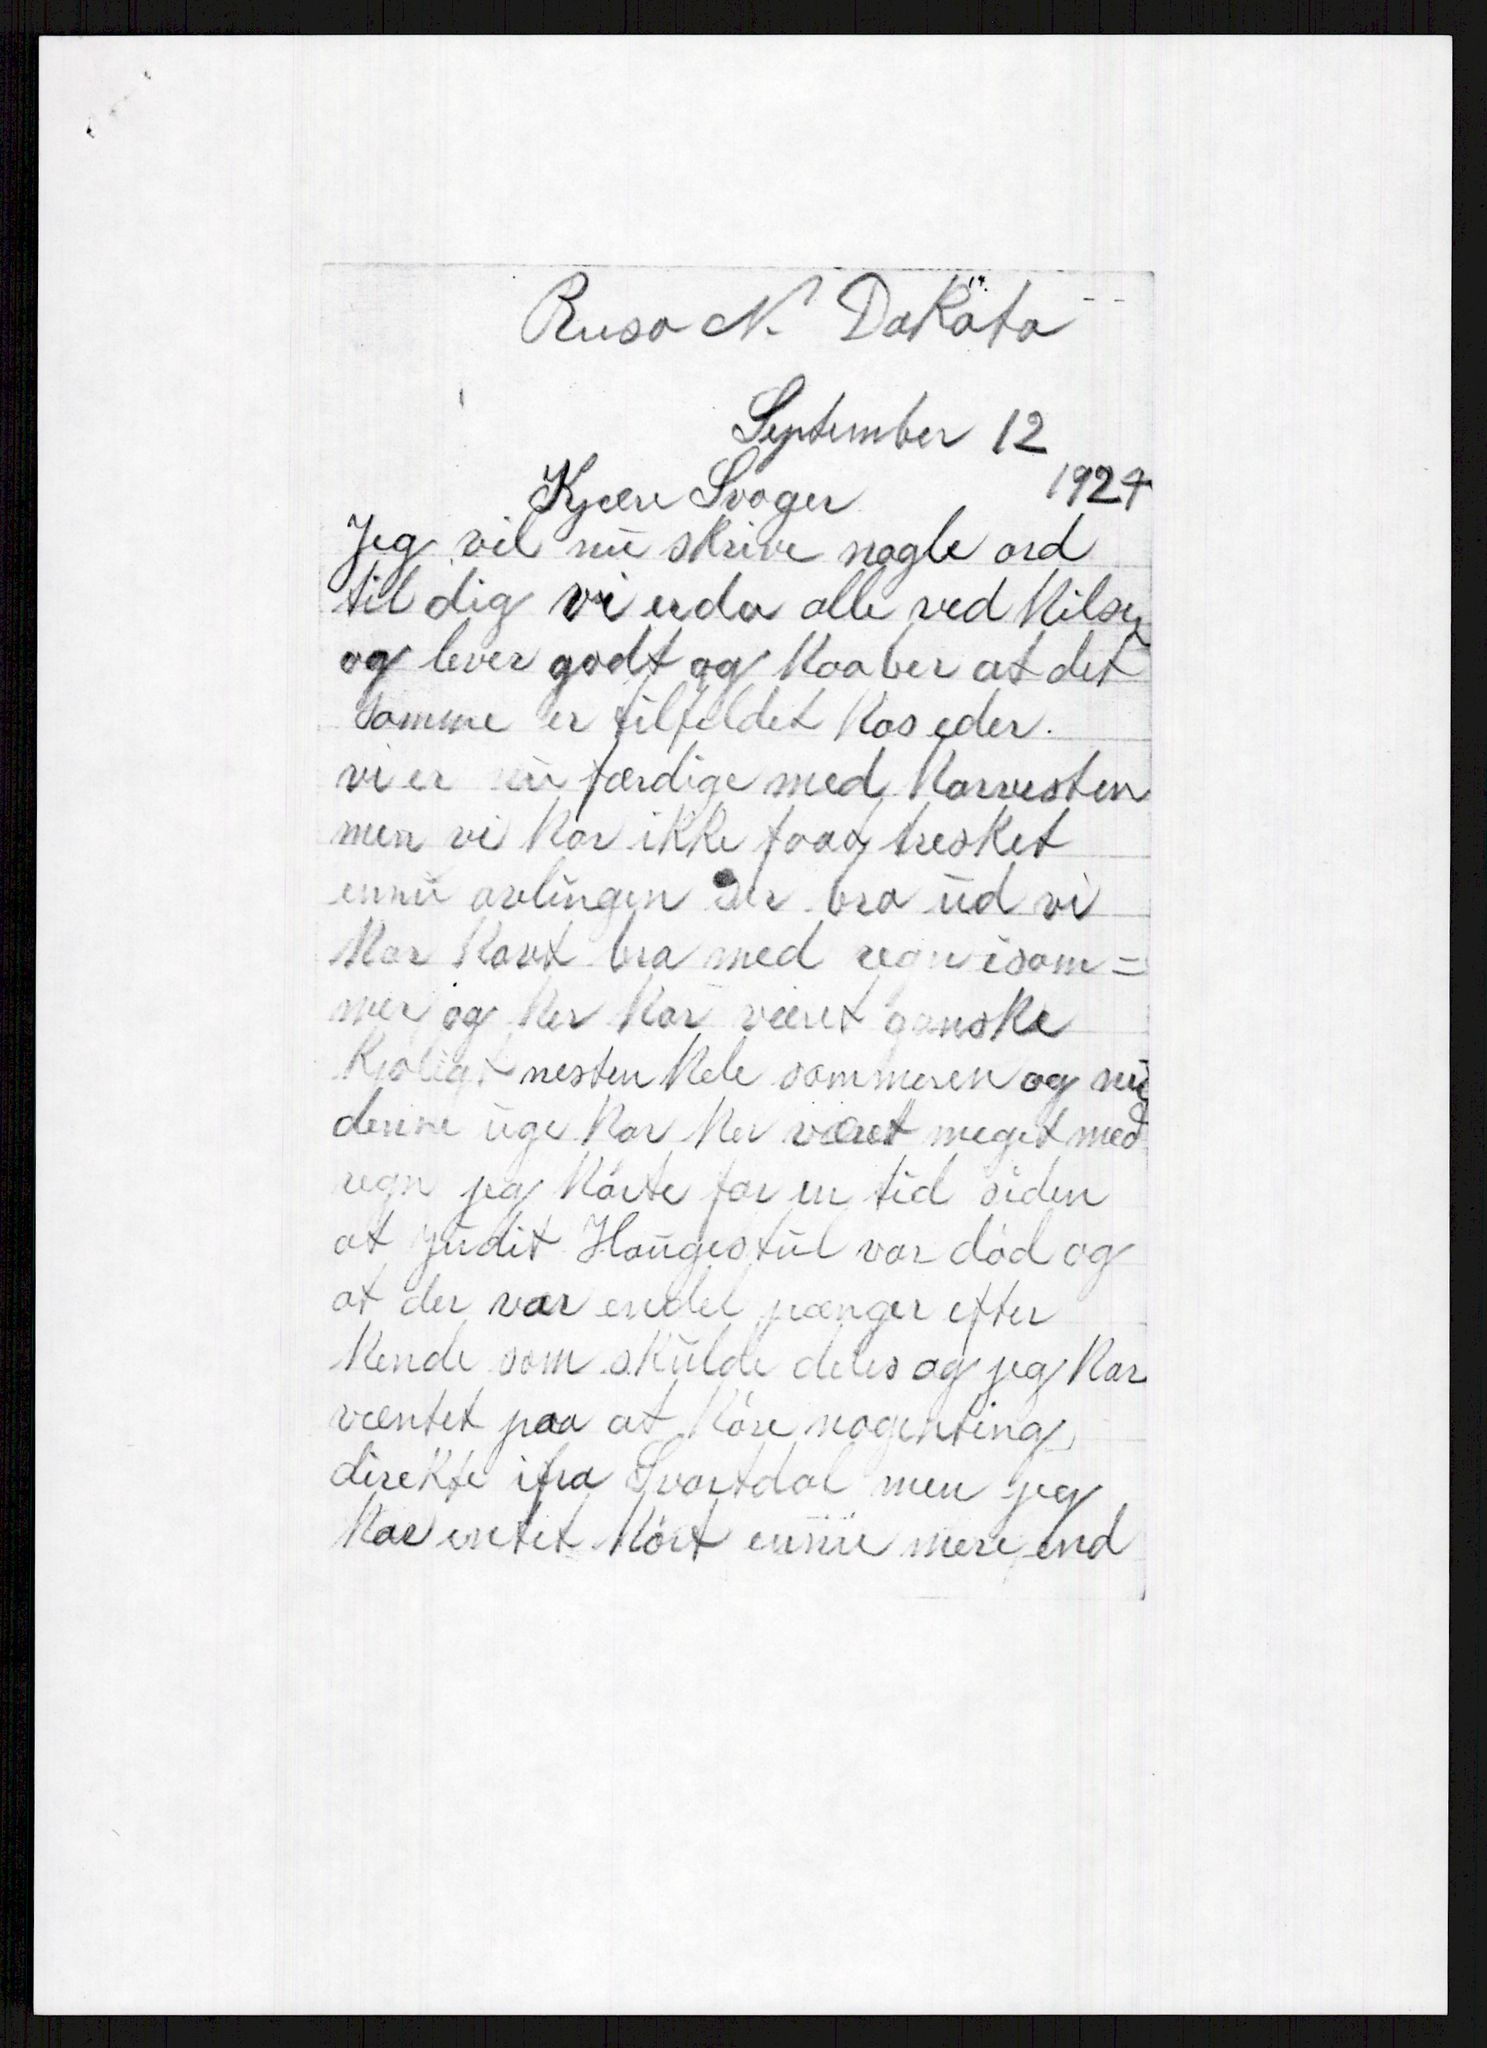 Ruso N. Dakota
September 12
1924
Kjære Svoger
Jeg vil nu skrive nogle ord
til dig vi er da alle ved Hilsen
og lever godt og Haaber at det
samme er tilfeldet Hos eder.
vi er nu færdige med Harvesten
men vi Har ikke faaet tresket
ennu avlingen ser bra ud vi
Har Havt bra med regn isom=
mer og Her Har været ganske
Kjøligt nesten Hele sommeren og nu
denne uge Har Her været meget med
regn jeg Hörte for en tid siden
at Judit Haugestul var död og
at der var endel pænger efter
Hende som skulde deles og jeg Har
væntet paa at Höre nogenting
direkte ifra Svartdal men jeg
Har intet Hört ennu mere end